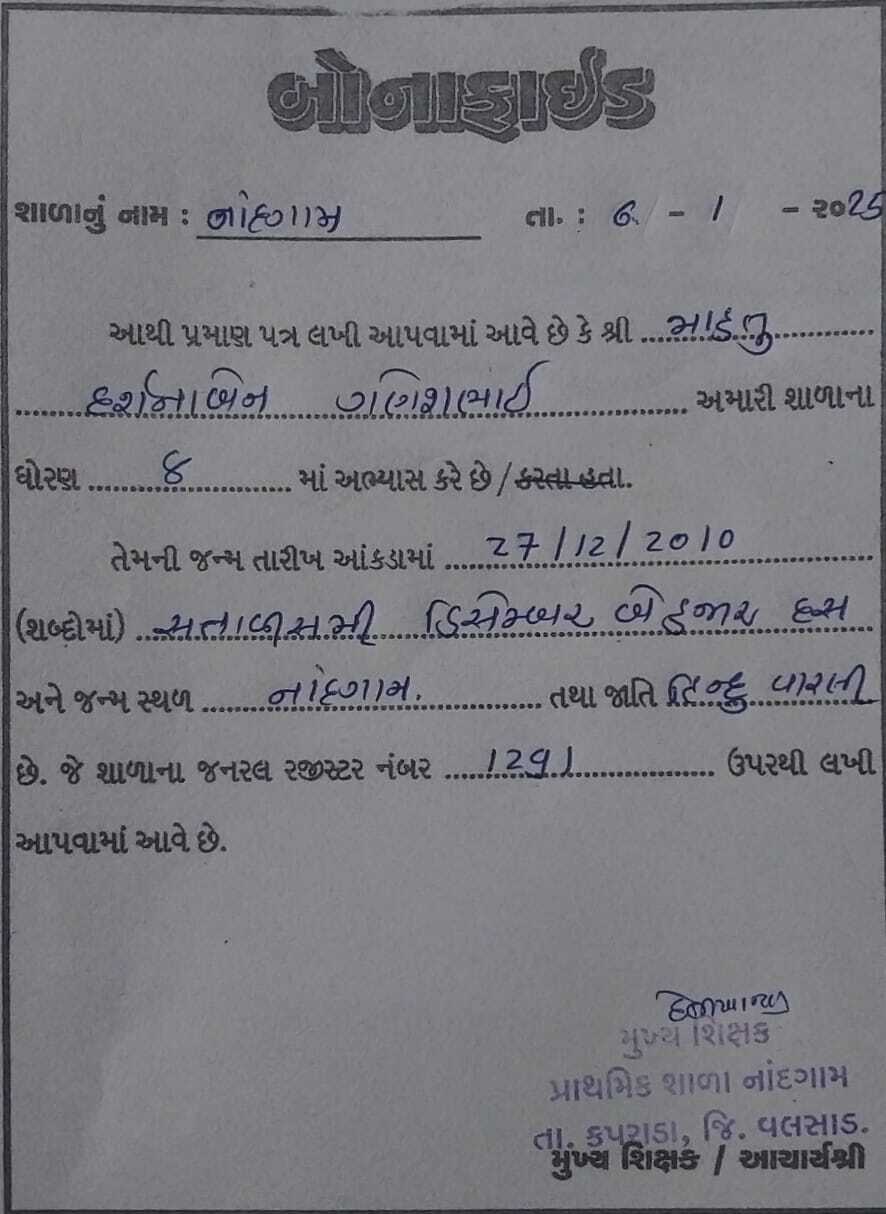 બોનાફાઈડ
શાળાનું નામ : નાંદગામ તા. : ૬ - 1 - ૨૦25
આથી પ્રમાણ પત્ર લખી આપવામાં આવે છે કે શ્રી
દર્શનાબેન ગણેશભાઈ અમારી શાળાના
ધોરણ ૪ માં અભ્યાસ કરે છે / કરતા હતા.
તેમની જન્મ તારીખ આંકડામાં 27/12/2010
(શબ્દોમાં) સતાવીસમી ડિસેમ્બર બે હજાર દસ
અને જન્મ સ્થળ નાંદગામ. તથા જાતિ હિન્દુ વારલી
છે. જે શાળાના જનરલ રજીસ્ટર નંબર 1291 ઉપરથી લખી
આપવામાં આવે છે.
મુખ્ય શિક્ષક
પ્રાથમિક શાળા નાંદગામ
તા. કપરાડા, જિ. વલસાડ.
મુખ્ય શિક્ષક / આચાર્યશ્રી